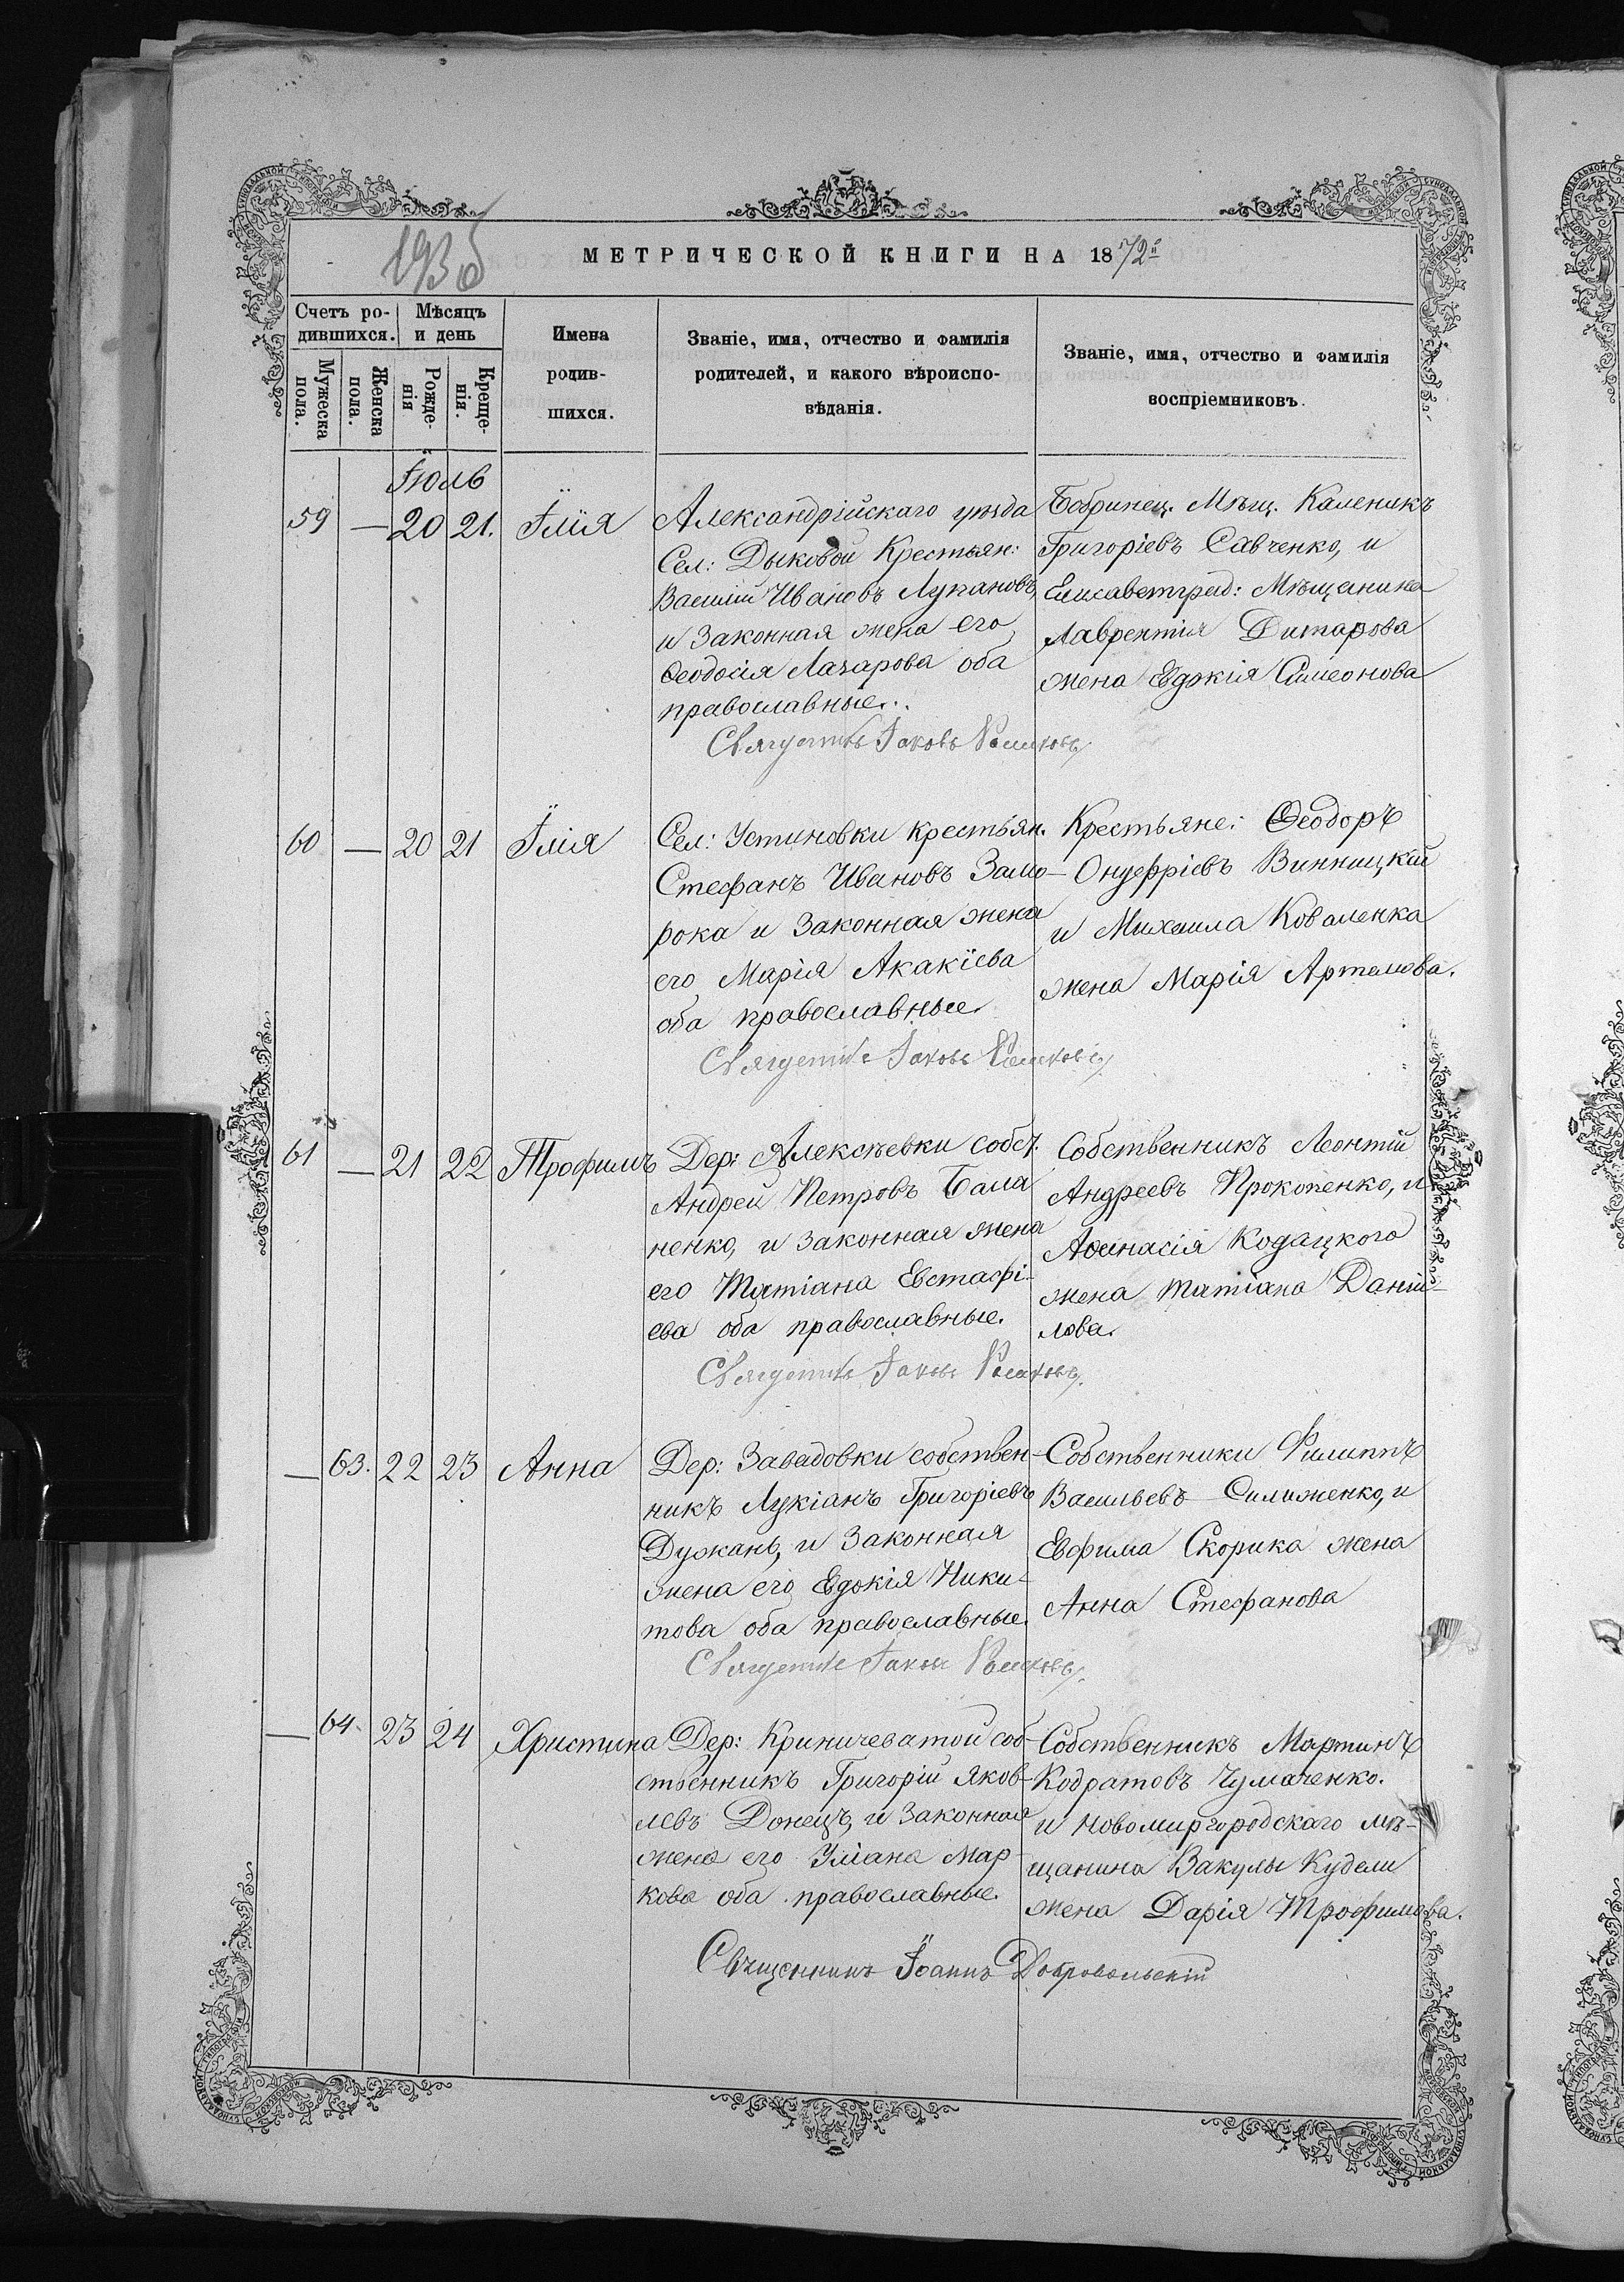 193 об
МЕТРИЧЕСКОЙ КНИГИ НА 1872й
Счетъ ро-
дившихся.
Мѣсяцъ
и день
Мужеска
пола.
Женска
пола.
Рожде-
нія
Креще-
нія.
Имена
родив-
шихся.
Званіе, имя, отчество и фамилія
родителей, и какого вѣроиспо-
вѣданія.
Званіе, имя, отчество и фамилія
воспріемниковъ.
Іюль
59 — 20 21. Ілія
Александрійскаго уѣзда
Сел: Дыковой Крестьян:
Василій Ивановъ Лупановъ,
и Законная жена его
Ѳеодосія Лазарова оба
православные.
Бобринец. Мѣщ. Каленикъ
Григоріевъ Савченко, и
Елисаветград: Мѣщанина
Лаврентія Дитарова
жена Евдокія Симеонова
60 — 20 21 Ілія
Сел: Устиновки крестьян.
Стефанъ Ивановъ Замо-
рока и Законная жена
его Марія Акакіева
оба православные.
Крестьяне: Ѳеодоръ
Онуфріевъ Винницкій
и Михаила Коваленка
жена Марія Артемова.
61 — 21 22 Трофимъ
Дер: Алексѣевки собст.
Андрей Петровъ Бала
ненко, и законная жена
его Татіана Евстафі-
ева оба православные.
Собственникъ Леонтій
Андреевъ Прокопенко, и
Аѳанасія Кодацкого
жена Татіана Даніи-
лова.
— 63. 22 23 Анна
Дер: Завадовки собствен-
никъ Лукіанъ Григоріевъ
Дужань, и Законная
жена его Евдокія Ники-
това оба православные.
Собственники Филиппъ
Васильевъ Силиженко, и
Евфима Скорика жена
Анна Стефанова
— 64. 23 24 Христина
Дер: Криничеватой соб-
ственникъ Григорій Яков-
левъ Донецъ, и Законная
жена его Уліана Мар
кова оба православные.
Собственникъ Мартинъ
Кодратовъ Чумаченко.
и новомиргородскаго мѣ-
щанина Вакулы Кудели
жена Дарія Трофимова.
Священникъ Іоаннъ Добровольскій